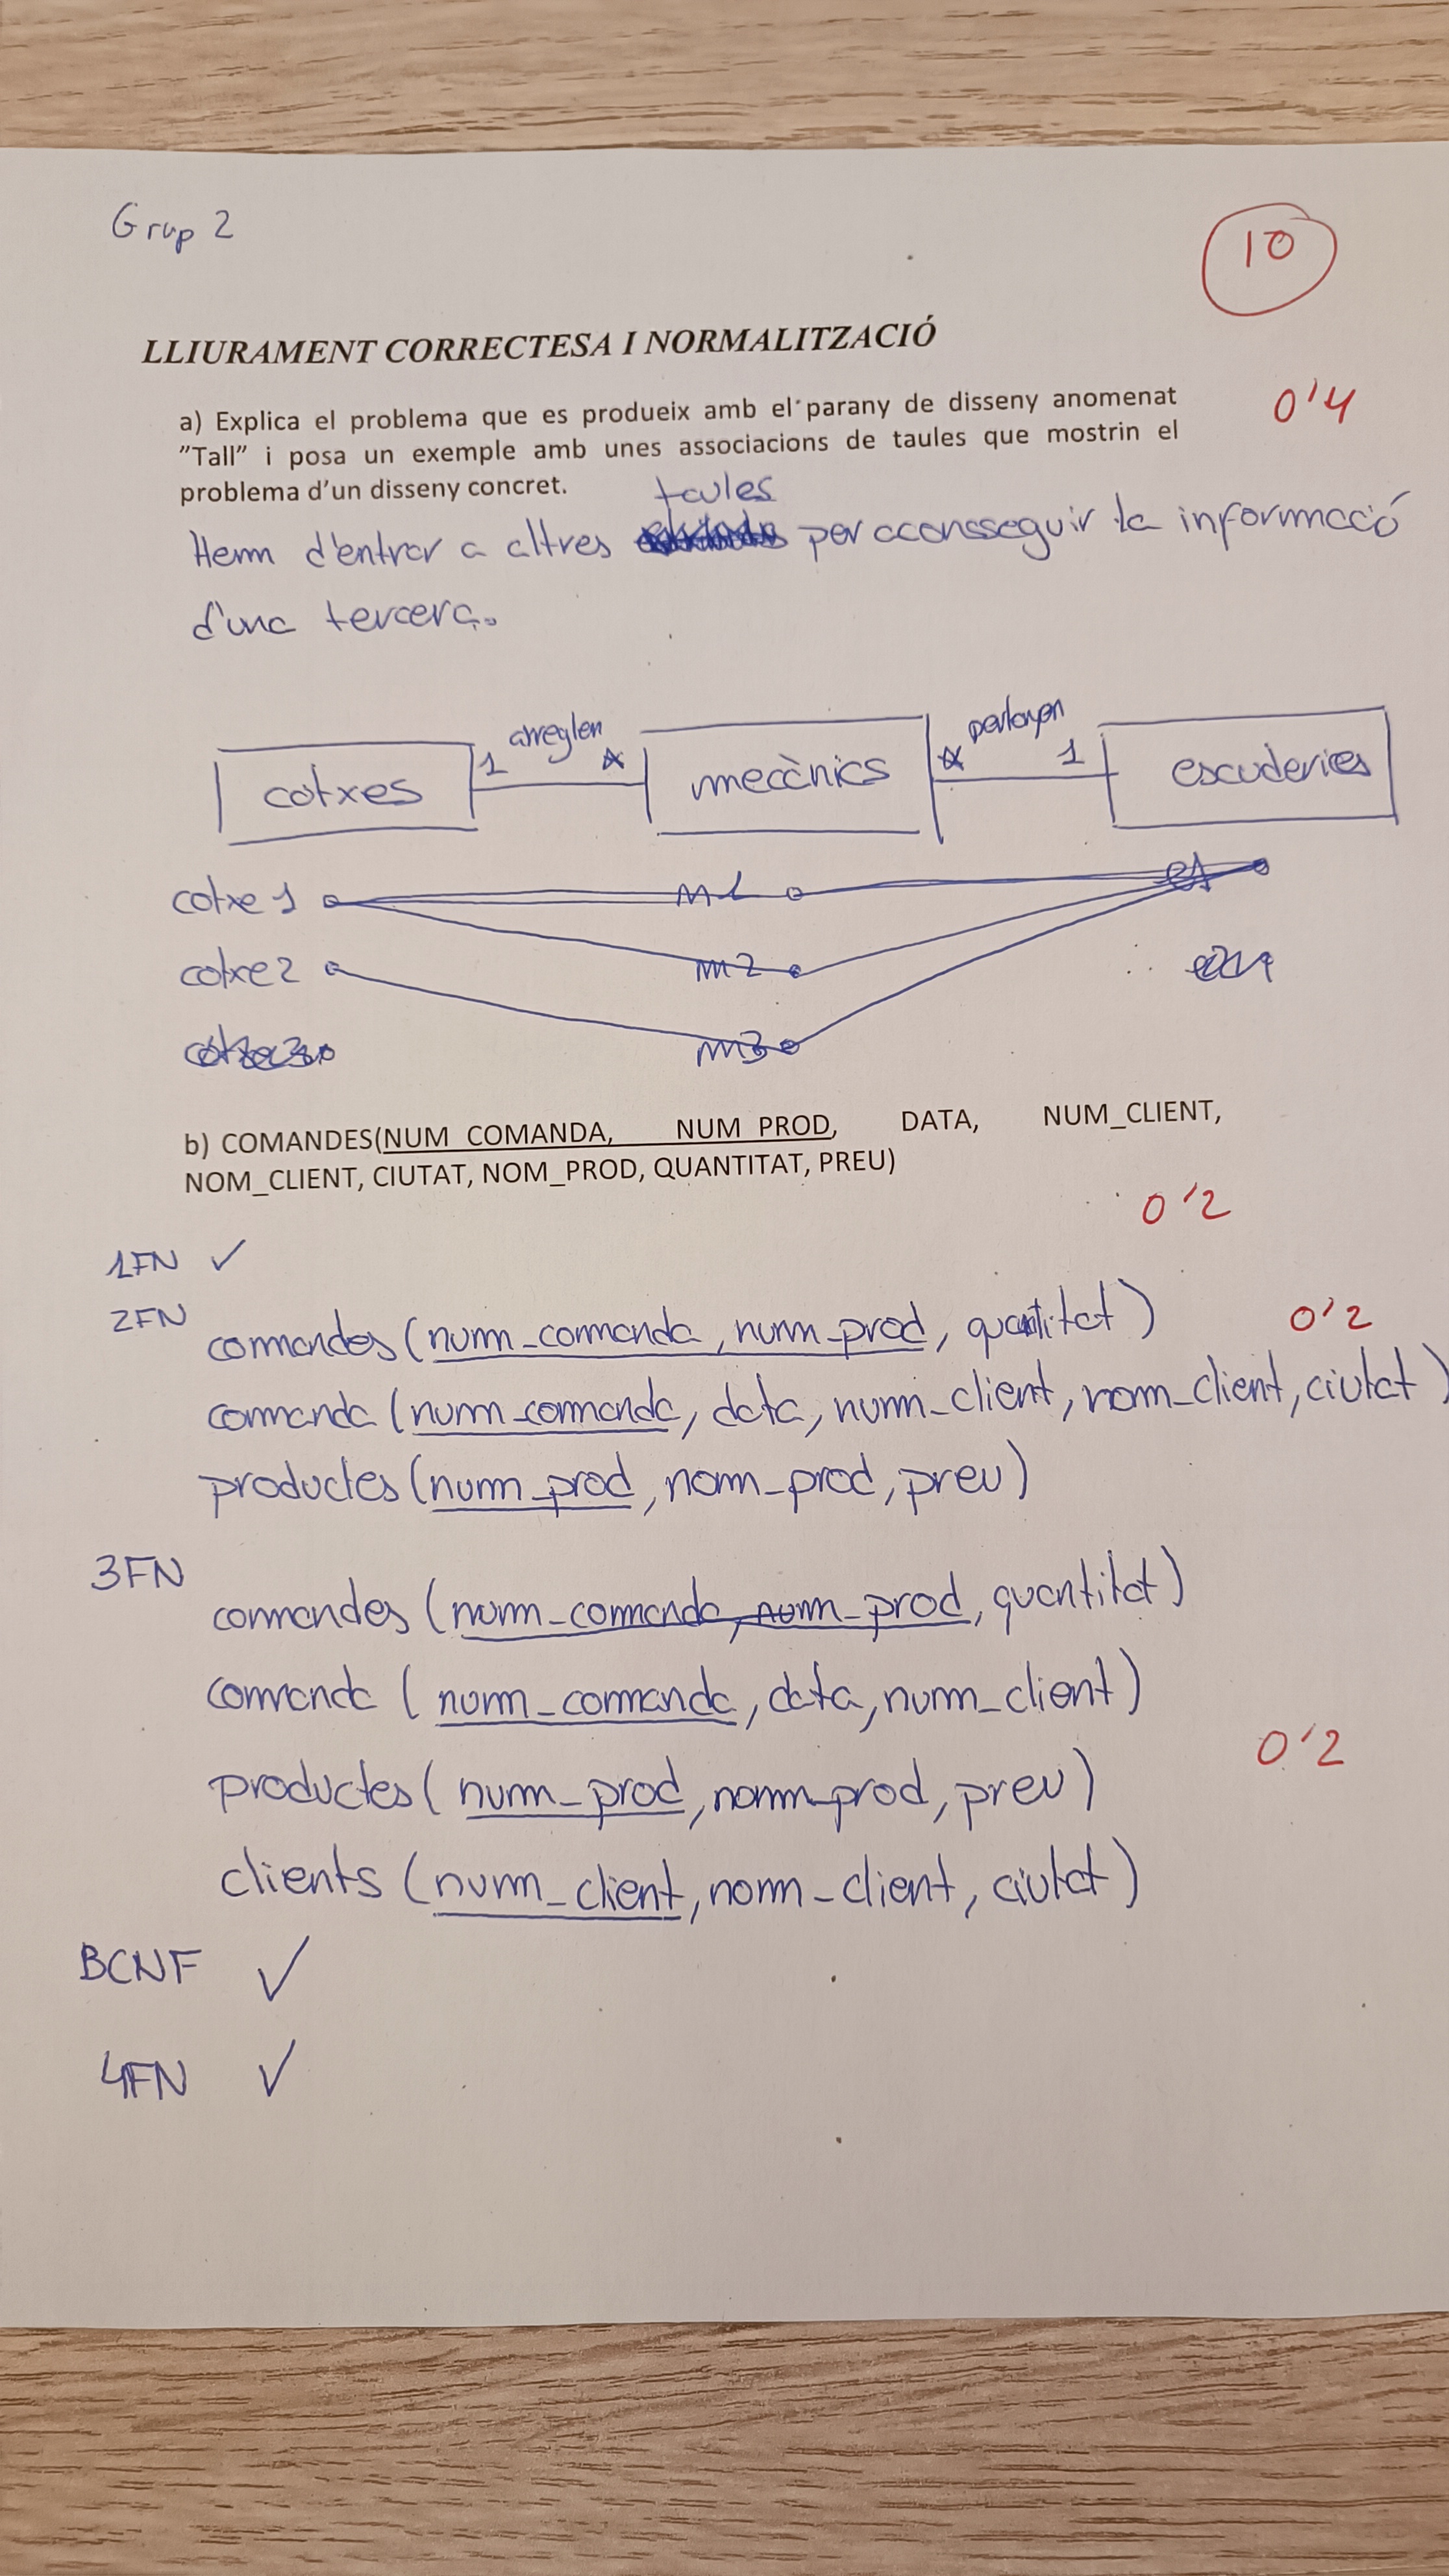 Grup 2
10
LLIURAMENT CORRECTESA I NORMALITZACIÓ
a) Explica el problema que es produeix amb el parany de disseny anomenat
"Tall" i posa un exemple amb unes associacions de taules que mostrin el
problema d'un disseny concret.
0'4
taules
Hem d'entrar a altres per aconsseguir la informació
d'una tercera.
cotxes 1 arreglen * mecànics * 1 escuderies
cotxe 1 m1 e1
cotxe 2 m2
m3
b) COMANDES(NUM_COMANDA, NUM_PROD, DATA, NUM_CLIENT,
NOM_CLIENT, CIUTAT, NOM_PROD, QUANTITAT, PREU)
0'2
1FN ✓
2FN
comandes (num_comanda, num_prod, quantitat)
0'2
comanda (num_comanda, data, num_client, nom_client, ciutat)
productes (num_prod, nom_prod, preu)
3FN
comandes (num_comanda, num_prod, quantitat)
comanda (num_comanda, data, num_client)
0'2
productes (num_prod, nom_prod, preu)
clients (num_client, nom_client, ciutat)
BCNF ✓
4FN ✓